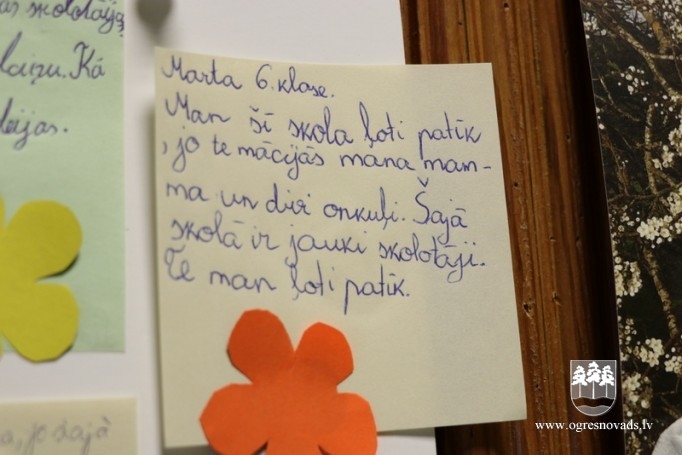 skolotāja
laiņu. Kā
Marta 6. klase.
Man šī skola ļoti patīk
, jo te mācijās mana mam-
ma un divi onkuļi. Šajā
skolā ir jauki skolotāji.
Te man ļoti patīk.
, jo šajā
www.ogresnovads.lv